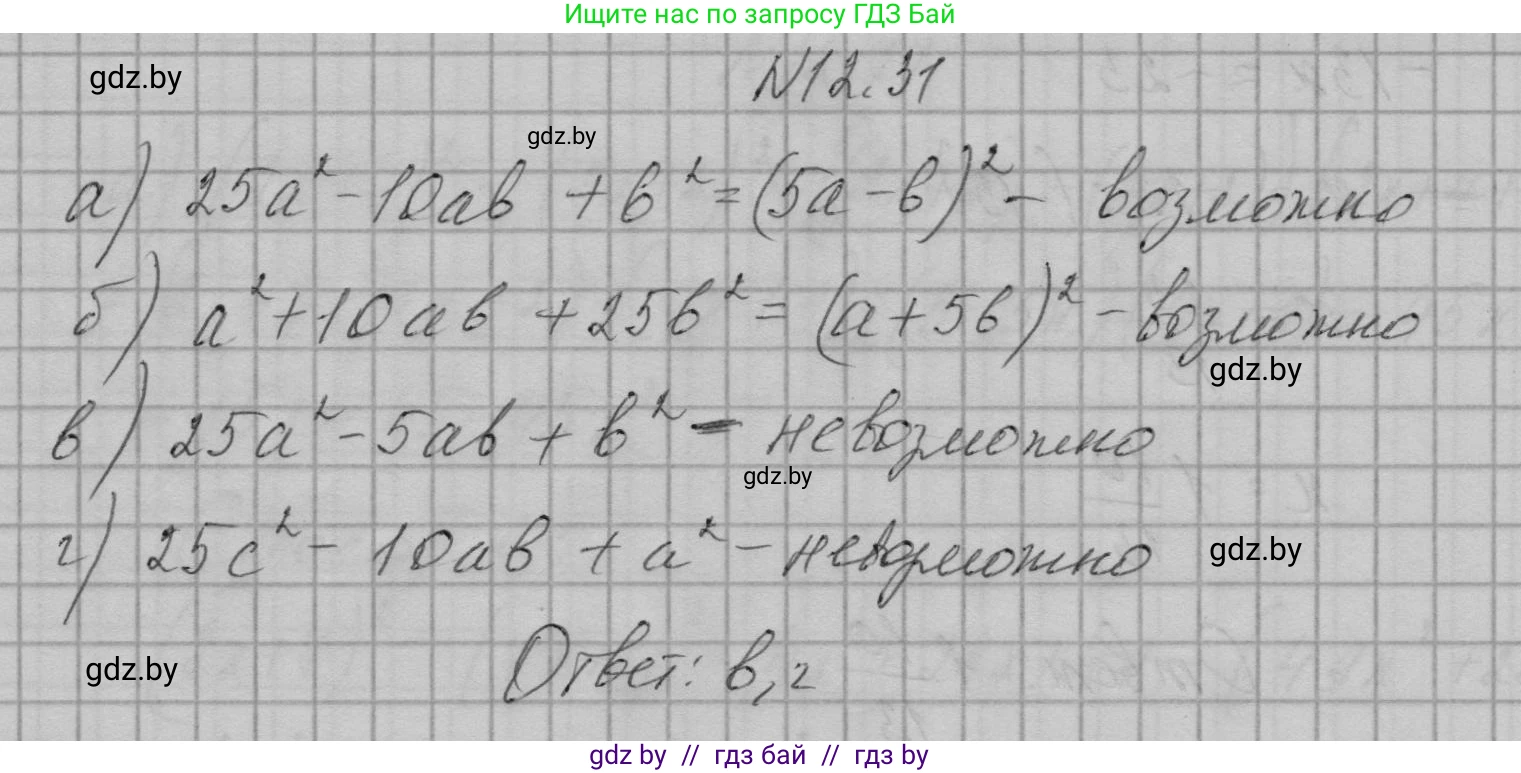 Ищите нас по запросу ГДЗ Бай
gdz.by
N12.31
gdz.by
а) 25a² - 10ab + b² = (5a - b)² - возможно
б) a² + 10ab + 25b² = (a + 5b)² - возможно
gdz.by
в) 25a² - 5ab + b² - невозможно
gdz.by
г) 25c² - 10ab + a² - невозможно
gdz.by
Ответ: в, г
gdz.by
gdz by // гдз бай // гдз by